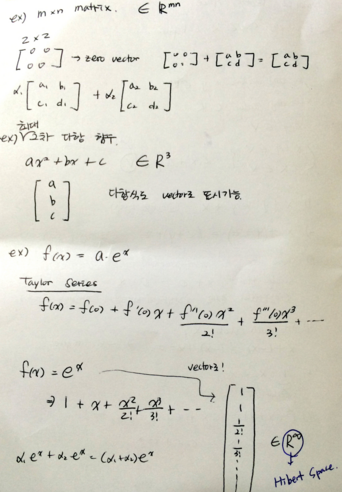 ex) m x n matrix. ∈ R^mn
2 x 2
[0 0; 0 0] → zero vector [0 0; 0 0] + [a b; c d] = [a b; c d]
α₁ [a₁ b₁; c₁ d₁] + α₂ [a₂ b₂; c₂ d₂]
최대
ex) √ 2차 다항 함수
ax² + bx + c ∈ R³
[a; b; c] 다항식도 vector로 표시가능.
ex) f(x) = a·eˣ
Taylor Series
f(x) = f(0) + f'(0)x + f''(0)x²/2! + f'''(0)x³/3! + ----
f(x) = eˣ vector로!
⇒ 1 + x + x²/2! + x³/3! + -- [1; 1; 1/2!; 1/3!; ⋮] ∈ R^∞
α₁eˣ + α₂eˣ = (α₁+α₂)eˣ
Hibert Space.